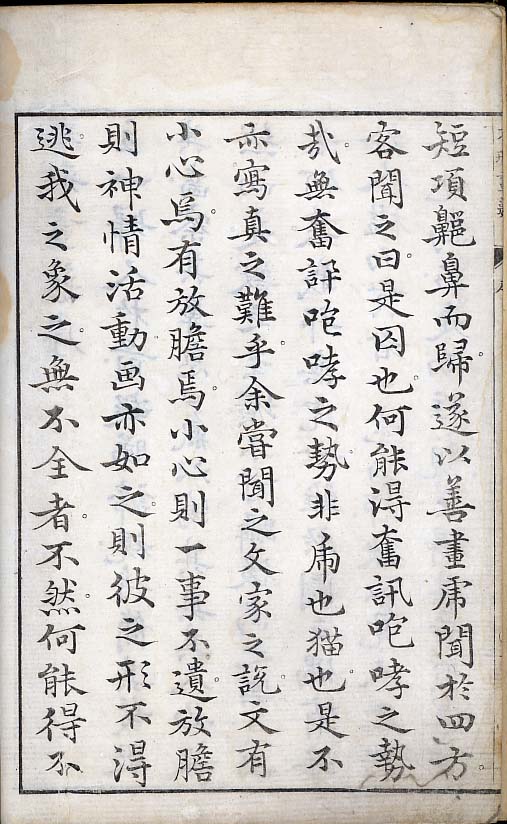 短項齆鼻而歸。遂以善畫虎聞於四方。
客聞之曰是囚也何能得奮訊咆哮之勢
哉。無奮訊咆哮之勢。非虎也猫也。是不
亦寫真之難乎。余嘗聞之文家之說。文有
小心焉。有放膽焉。小心則一事不遺。放膽
則神情活動。画亦如之。則彼之形不得
逃我之象之。無不全者。不然。何能得不